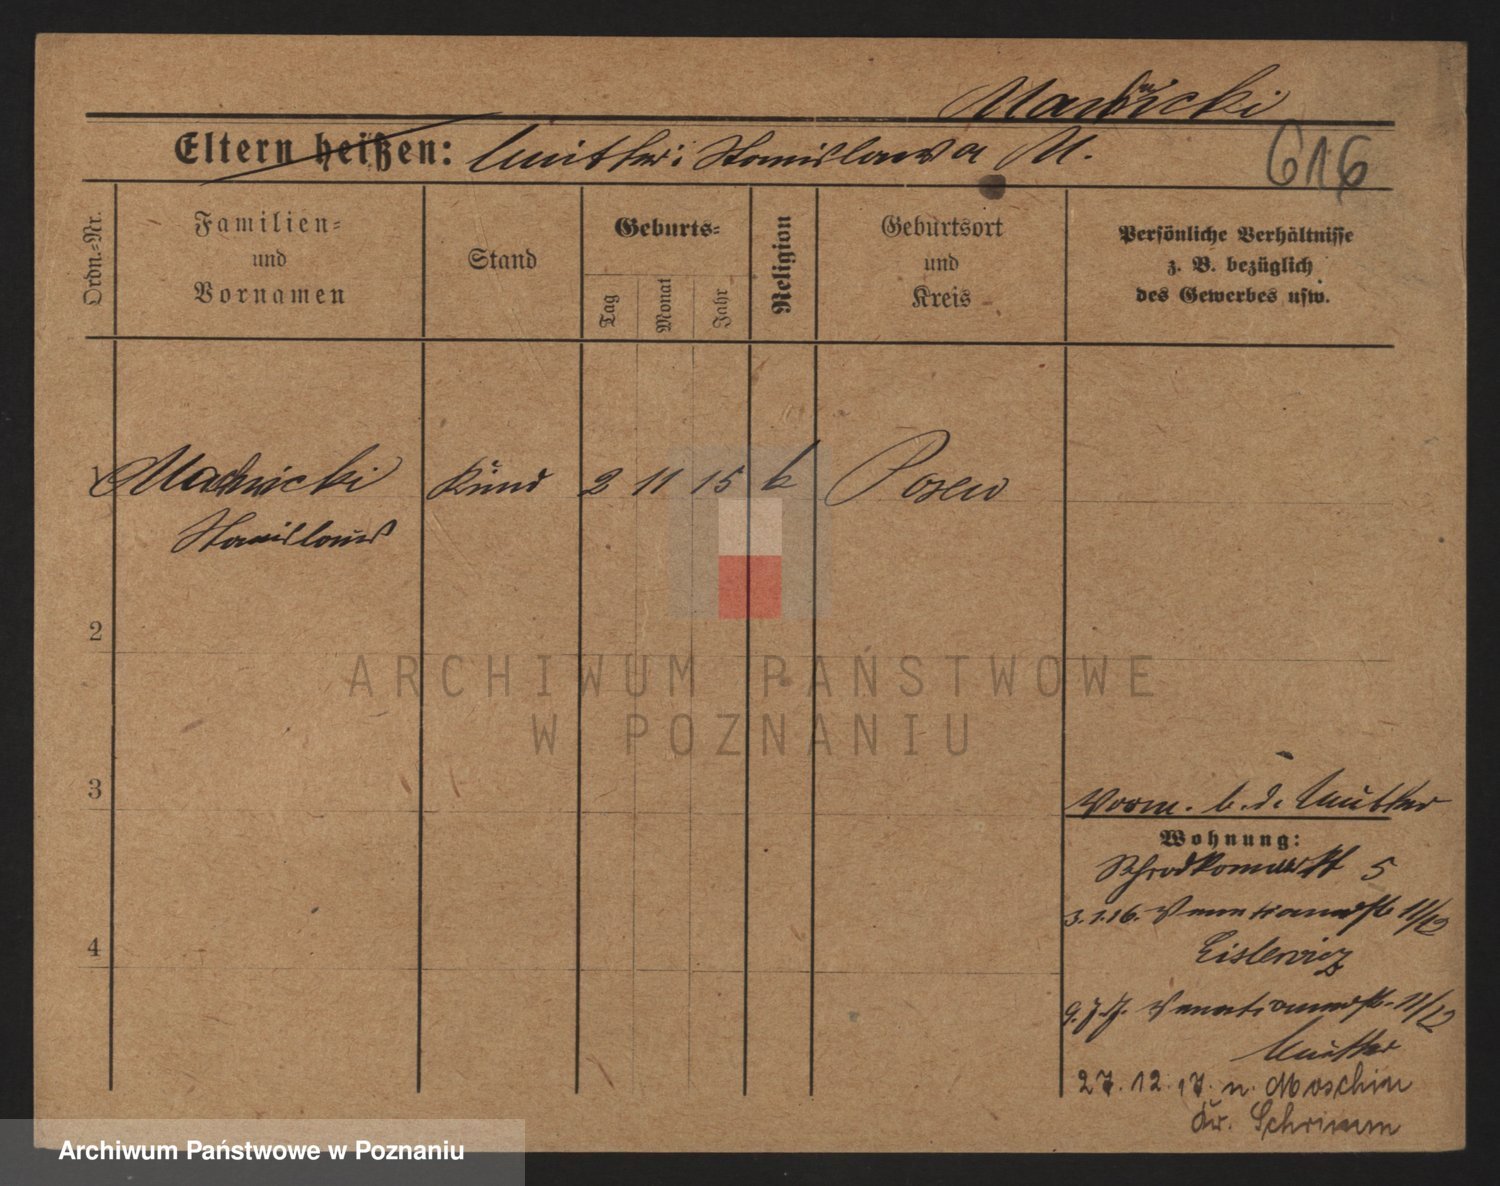 616
Eltern heißen: Mutter: Stanislawa M.
Ordn.-Nr.
Familien-
und
Vornamen
Stand
Geburts-
Tag
Monat
Jahr
Religion
Geburtsort
und
Kreis
Persönliche Verhältnisse
z. B. bezüglich
des Gewerbes usw.
1 Kind 2 11 15 k Posen
Stanislaus
2
3
4
Vorm. b. d. Mutter
Wohnung:
Schrodkamarkt 5
3.1.16. 11/12
9.7.17. 11/12
Mutter
27.12.17. n. Moschin
Kr. Schrimm
ARCHIWUM PAŃSTWOWE
W POZNANIU
Archiwum Państwowe w Poznaniu